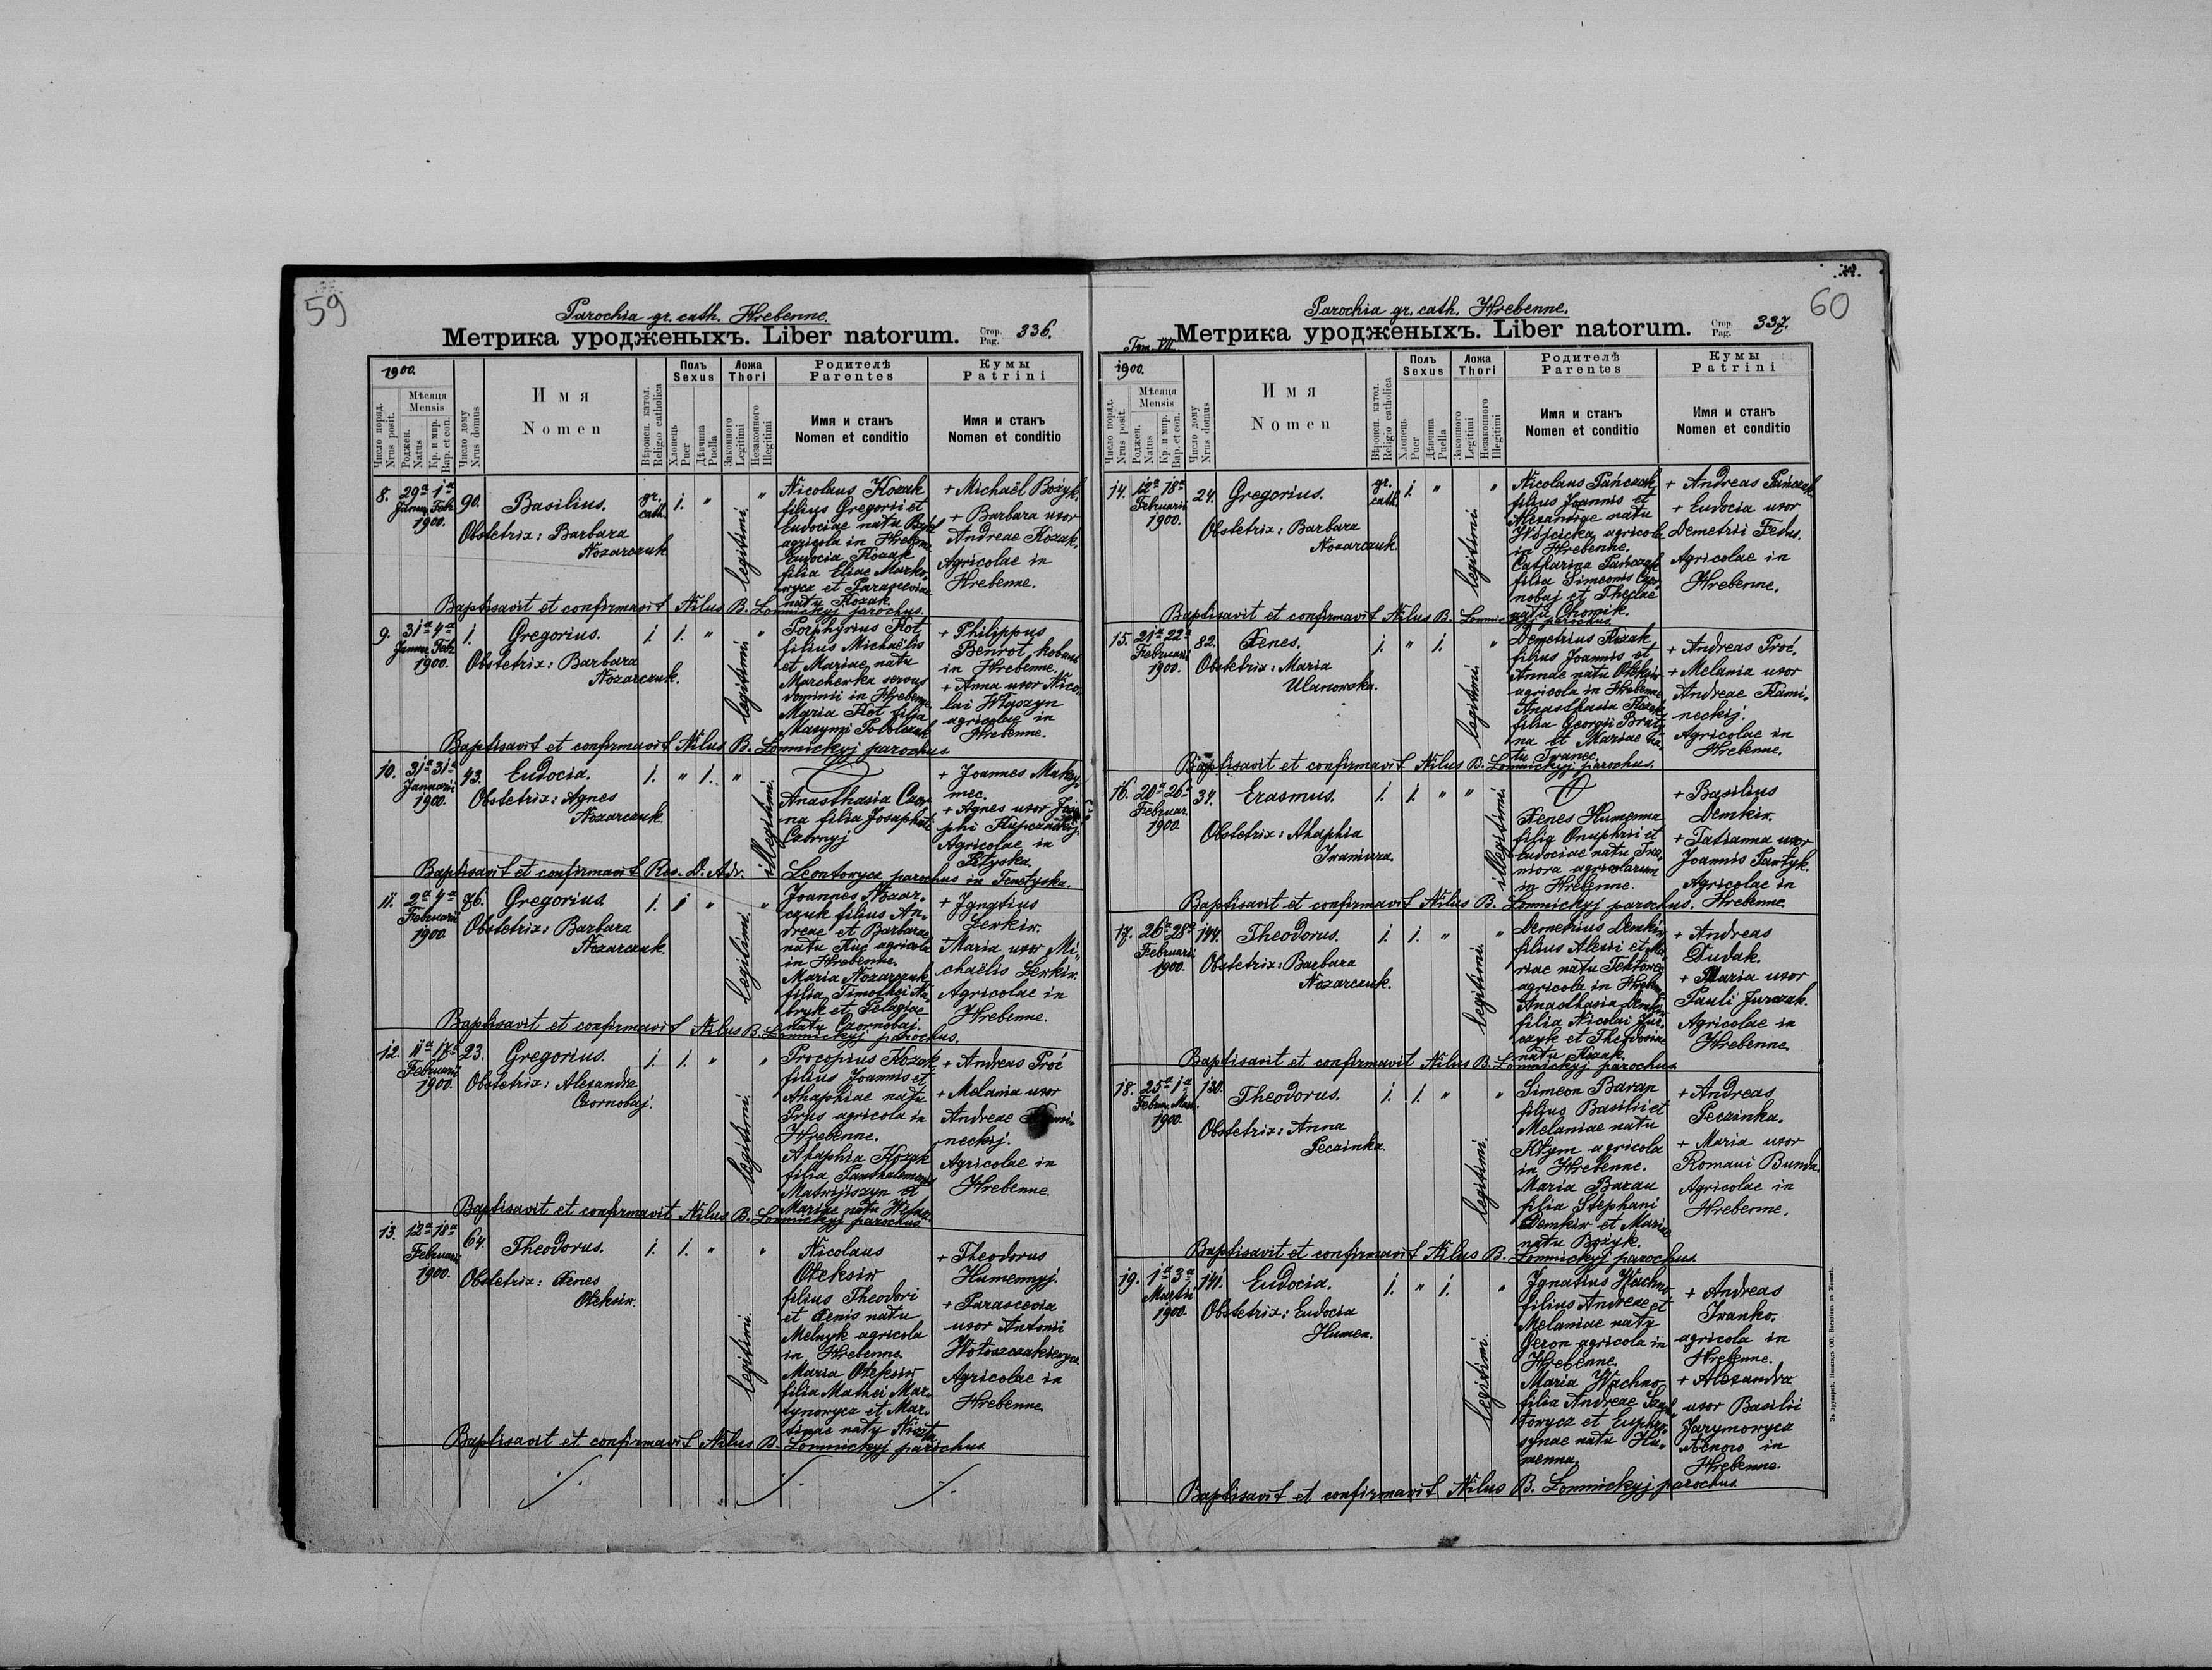 59
Parochia gr. cath. Hrebenne.
Метрика уродженыхъ. Liber natorum. Стор. Pag. 336.
1900.
Число поряд. Nrus posit.
Мѣсяця Mensis
Роджен. Natus
Кр. и мир. Bap. et con.
Число дому Nrus domus
Имя
Nomen
Вѣроисп. катол. Religio catholica
Полъ Sexus
Хлопець Puer
Дѣвчина Puella
Ложа Thori
Законного Legitimi
Незаконного Illegitimi
Родителѣ
Parentes
Имя и станъ
Nomen et conditio
Кумы
Patrini
Имя и станъ
Nomen et conditio
8. 29a 1a Januar. Feb. 1900. 90. Basilius. gr. cath. 1. " legitimi. "
Obstetrix: Barbara
Nozarczuk
Nicolaus Kozak
filius Gregorii et
Eudociae natu
agricola in Hrebenne
Eudocia Kozak
filia Eliae Marko-
wycz et Parasceviae
natu Kozak.
+ Michaël Bożyk.
+ Barbara uxor
Andreae Kozak.
Agricolae in
Hrebenne.
Baptisavit et confirmavit Nilus B. Lomnickyj parochus.
9. 31a 4a Januar. Feb. 1900. 1. Gregorius. 1. 1. " legitimi "
Obstetrix: Barbara
Nozarczuk.
Porphyrius Kot
filius Michaëlis
et Mariae natu
Marcherka servus
dominii in Hrebenne
Maria Kot filia
Maxymi
+ Philippus
Benrot
in Hrebenne.
+ Anna uxor Nico-
lai
agricolae in
Hrebenne.
Baptisavit et confirmavit Nilus B. Lomnickyj parochus.
10. 31a 31a Januarii 1900. 43. Eudocia. 1. " 1. " illegitimi.
Obstetrix: Agnes
Nozarczuk.
Anasthasia Czor-
na filia Josaphati
Czornyj
+ Joannes Maksy-
mec.
+ Agnes uxor
Agricolae in
Baptisavit et confirmavit Res. D. Adr. Leontowycz parochus in Tenetyska.
11. 2a 4a Februarii 1900. 76. Gregorius. 1. 1 " legitimi. "
Obstetrix: Barbara
Nozarczuk.
Joannes Nozar-
czuk filius An-
dreae et Barbarae
natu Kuc agricola
in Hrebenne.
Maria Nozarczuk
filia Timothei
et Pelagiae
natu Czornobaj.
+ Jgnatius
Lewkiw.
+ Maria uxor Mi-
chaëlis Lewkiw.
Agricolae in
Hrebenne.
Baptisavit et confirmavit Nilus B. Lomnickyj parochus.
12. 11a 17a Februarii 1900. 23. Gregorius. 1. 1. " legitimi. "
Obstetrix: Alexandra
Czornobaj.
Procopius Kozak
filius Joannis et
Ahaphiae natu
Prus agricola in
Hrebenne.
Ahaphia Kozak
filia Panthalemonis
Matwijiszyn et
Mariae natu
+ Andreas Proć
+ Melania uxor
Andreae Kami-
neckij.
Agricolae in
Hrebenne.
Baptisavit et confirmavit Nilus B. Lomnickyj parochus
13. 12a 18a Februarii 1900. 64. Theodorus. 1. 1. " legitimi. "
Obstetrix: Xenes
Ołeksiw.
Nicolaus
Ołeksiw
filius Theodori
et Xenis natu
Melnyk agricola
in Hrebenne.
Maria Ołeksiw
filia Mathei Mar-
tynowycz et Mar-
tinae natu
+ Theodorus
Humennyj.
+ Parascevia
uxor Antonii
Wołoszczakiewycz
Agricolae in
Hrebenne.
Baptisavit et confirmavit Nilus B. Lomnickyj parochus.
60
Parochia gr. cath. Hrebenne.
Tom. VII.
Метрика уродженыхъ. Liber natorum. Стор. Pag. 337.
1900.
Число поряд. Nrus posit.
Мѣсяця Mensis
Роджен. Natus
Кр. и мир. Bap. et con.
Число дому Nrus domus
Имя
Nomen
Вѣроисп. катол. Religio catholica
Полъ Sexus
Хлопець Puer
Дѣвчина Puella
Ложа Thori
Законного Legitimi
Незаконного Illegitimi
Родителѣ
Parentes
Имя и станъ
Nomen et conditio
Кумы
Patrini
Имя и станъ
Nomen et conditio
14. 12a 18a Februarii 1900. 24. Gregorius. gr. cath. 1. " legitimi. "
Obstetrix: Barbara
Nozarczuk.
Nicolaus Pańczak
filius Joannis et
Alexandrae natu
Wójcicka agricola
in Hrebenne.
Catharina Pańczak
filia Simeonis Czor-
nobaj et Theclae
natu Chomik.
+ Andreas Pańczak
+ Eudocia uxor
Demetrii Fedus.
Agricolae in
Hrebenne.
Baptisavit et confirmavit Nilus B. Lomnickyj parochus
15. 21a 22a Februarii 1900. 82. Xenes. 1. " 1. legitimi. "
Obstetrix: Maria
Ulanowska.
Demetrius Kozak
filius Joannis et
Annae natu Ołeksiw
agricola in Hrebenne
Anasthasia Kozak
filia Georgii
et Mariae na-
tu Iwanec.
+ Andreas Proć.
+ Melania uxor
Andreae Kami-
neckij.
Agricolae in
Hrebenne.
Baptisavit et confirmavit Nilus B. Lomnickyj parochus.
16. 20a 26a Februar. 1900. 34. Erasmus. 1. 1. " " illegitimi.
Obstetrix: Ahaphia
Iwaniura.
Xenes Humenna
filia Onuphrii et
Eudociae natu Iwa-
niora agricolarum
in Hrebenne.
+ Basilius
Demkiw.
+ Tatianna uxor
Joannis Pawłyk.
Agricolae in
Hrebenne.
Baptisavit et confirmavit Nilus B. Lomnickyj parochus.
17. 26a 28a Februarii 1900. 144. Theodorus. 1. 1. " legitimi. "
Obstetrix: Barbara
Nozarczuk.
Demetrius Demkiw
filius Alexii et Ma-
riae natu
agricola in Hrebenne
Anasthasia Demkiw
filia Nicolai Jur-
czyk et Theodosiae
natu Kozak.
+ Andreas
Dudak.
+ Maria uxor
Pauli Jurczak.
Agricolae in
Hrebenne.
Baptisavit et confirmavit Nilus B. Lomnickyj parochus
18. 25a 1a Febru. Mart. 1900. 130. Theodorus. 1. 1. " legitimi. "
Obstetrix: Anna
Peczinka.
Simeon Baran
filius Basilii et
Melaniae natu
Kłym agricola
in Hrebenne.
Maria Baran
filia Stephani
Demkiw et Mariae
natu Bożyk.
+ Andreas
Peczinka.
+ Maria uxor
Romani Bunda.
Agricolae in
Hrebenne.
Baptisavit et confirmavit Nilus B. Lomnickyj parochus.
19. 1a 3a Martii 1900. 141. Eudocia. 1. " 1. legitimi. "
Obstetrix: Eudocia
Humen.
Jgnatius Wachno
filius Andreae et
Melaniae natu
Geron agricola in
Hrebenne.
Maria Wachno
filia Andreae
et Euphro-
synae natu Hu-
menna.
+ Andreas
Iwanko.
agricola in
Hrebenne.
+ Alexandra
uxor Basilii
Jarymowycz
in
Hrebenne.
Baptisavit et confirmavit Nilus B. Lomnickyj parochus.